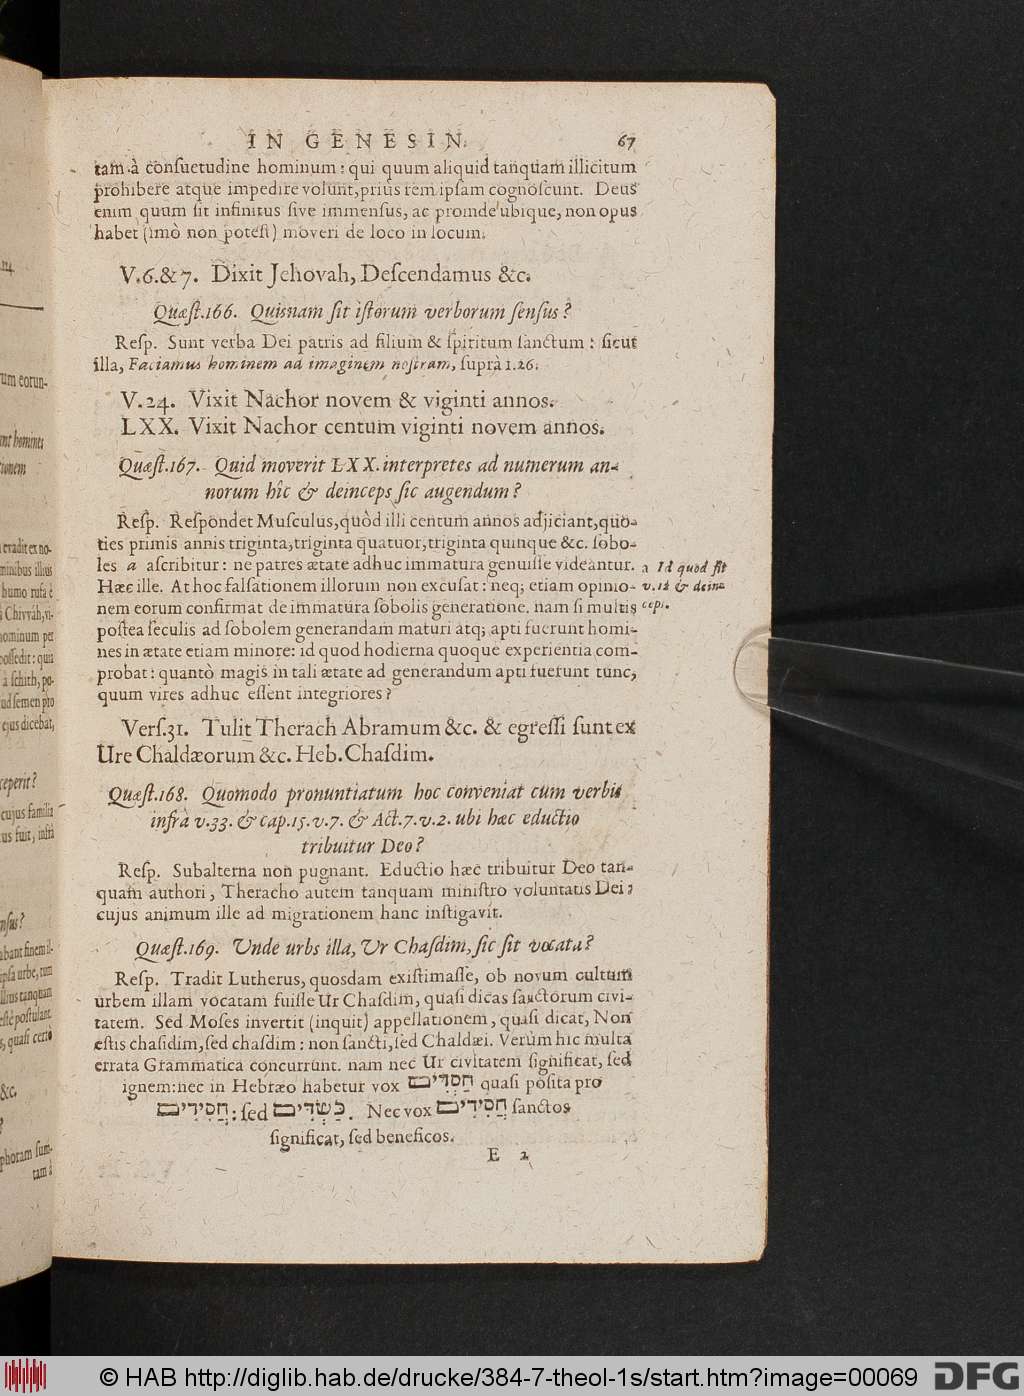 IN GENESIN. 67
tam à consuetudine hominum : qui quum aliquid tanquam illicitum
prohibere atque impedire volunt, prius rem ipsam cognoscunt. Deus
enim quum sit infinitus sive immensus, ac proinde ubique, non opus
habet (imò non potest) moveri de loco in locum.
V.6.&7. Dixit Jehovah, Descendamus &c.
Quæst.166. Quisnam sit istorum verborum sensus?
Resp. Sunt verba Dei patris ad filium & spiritum sanctum : sicut
illa, Faciamus hominem ad imaginem nostram, suprà 1.26.
V.24. Vixit Nachor novem & viginti annos.
LXX. Vixit Nachor centum viginti novem annos.
Quæst.167. Quid moverit LXX. interpretes ad numerum an-
norum hîc & deinceps sic augendum?
Resp. Respondet Musculus, quòd illi centum annos adjiciant, quo-
ties primis annis triginta, triginta quatuor, triginta quinque &c. sobo-
les a ascribitur : ne patres ætate adhuc immatura genuisse videantur.
a Id quod fit
Hæc ille. At hoc falsationem illorum non excusat : neq; etiam opinio-
v.12 & dein-
nem eorum confirmat de immatura sobolis generatione. nam si multis
ceps.
postea seculis ad sobolem generandam maturi atq; apti fuerunt homi-
nes in ætate etiam minore: id quod hodierna quoque experientia com-
probat : quantò magis in tali ætate ad generandum apti fuerunt tunc,
quum vires adhuc essent integriores?
Vers.31. Tulit Therach Abramum &c. & egressi sunt ex
Ure Chaldæorum &c. Heb. Chasdim.
Quæst.168. Quomodo pronuntiatum hoc conveniat cum verbis
infrà v.33. & cap.15.v.7. & Act.7.v.2. ubi hæc eductio
tribuitur Deo?
Resp. Subalterna non pugnant. Eductio hæc tribuitur Deo tan-
quam authori, Theracho autem tanquam ministro voluntatis Dei,
cujus animum ille ad migrationem hanc instigavit.
Quæst.169. Unde urbs illa, Ur Chasdim, sic sit vocata?
Resp. Tradit Lutherus, quosdam existimasse, ob novum cultum
urbem illam vocatam fuisse Ur Chasdim, quasi dicas sanctorum civi-
tatem. Sed Moses invertit (inquit) appellationem, quasi dicat, Non
estis chasidim, sed chasdim : non sancti, sed Chaldæi. Verùm hic multa
errata Grammatica concurrunt. nam nec Ur civitatem significat, sed
ignem: nec in Hebræo habetur vox חַסְדִּים quasi posita pro
חֲסִידִים : sed כַּשְׂדִּים. Nec vox חֲסִידִים sanctos
significat, sed beneficos.
E 2
© HAB http://diglib.hab.de/drucke/384-7-theol-1s/start.htm?image=00069
DFG